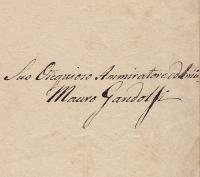 Suo Ossequioso Ammiratore ed Amico
Mauro Gandolfi